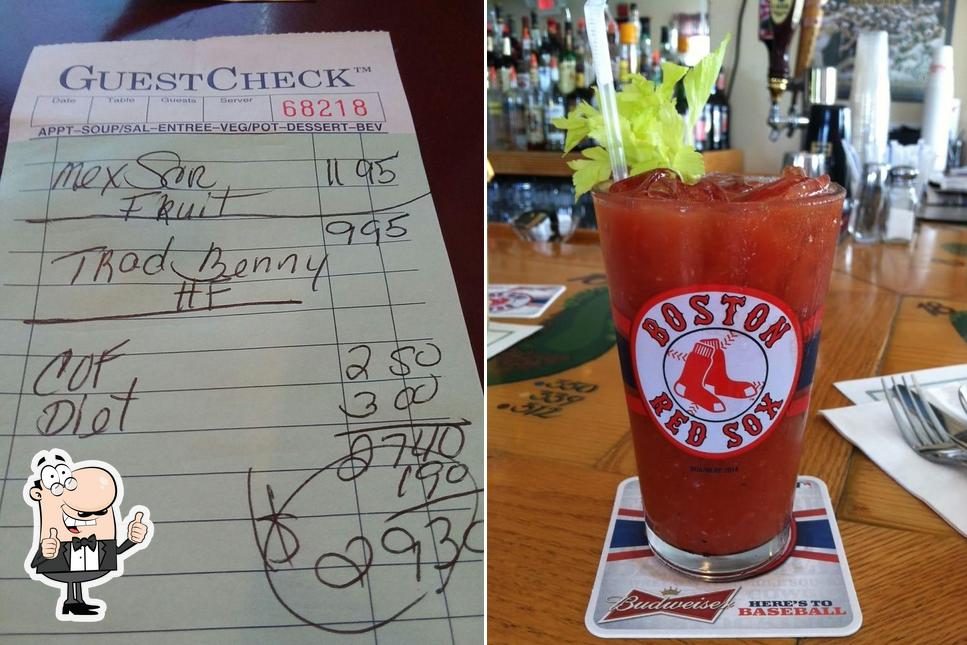 GUESTCHECK™
Date Table Guests Server 68218
APPT-SOUP/SAL-ENTREE-VEG/POT-DESSERT-BEV
Mex San 11 95
Fruit
995
Trad Benny
HF
COF 2 50
Diet 3 00
2740
190
$ 2930
BOSTON
RED SOX
.330
.339
.312
Budweiser
HERE'S TO
BASEBALL